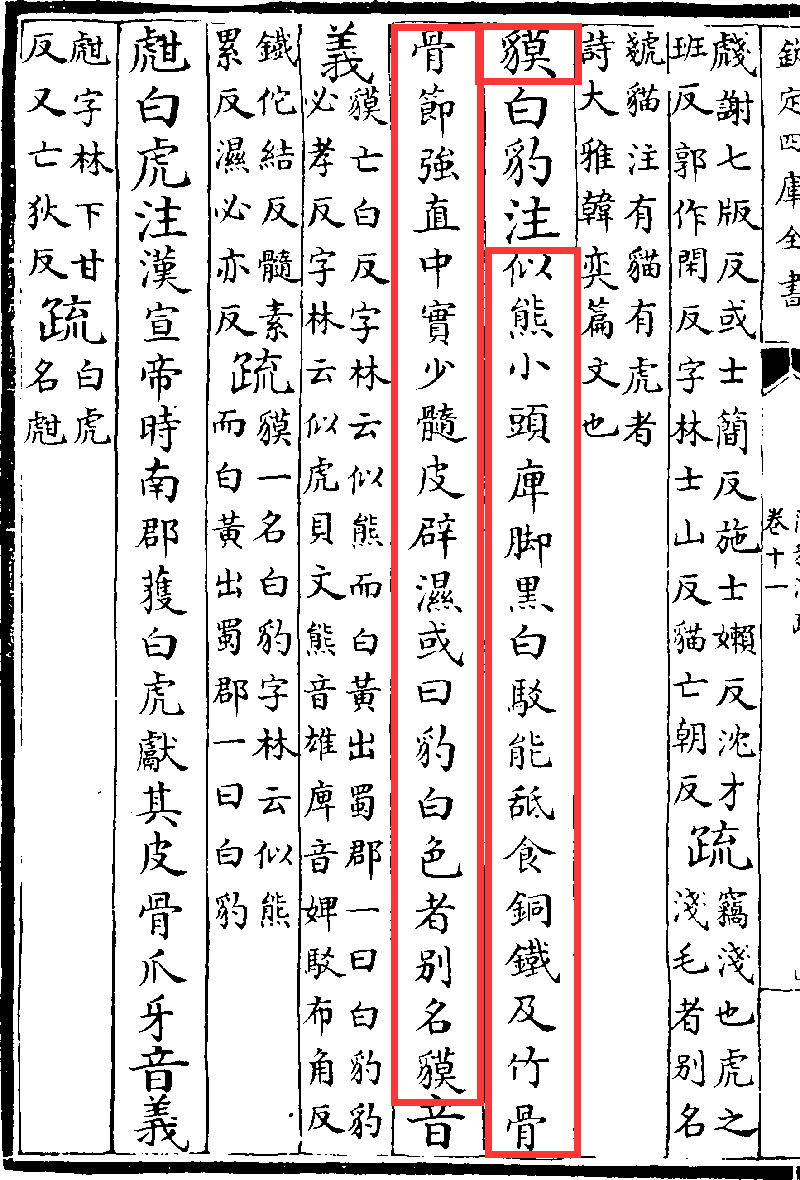 欽定四庫全書
卷十一
虥謝七版反或士簡反施士嬾反沈才
班反郭作閑反字林士山反貓亡朝反
疏
竊淺也虎之
淺毛者别名
貓注有貓有虎者
詩大雅韓奕篇文也
貘白豹注似熊小頭庳脚黑白駁能舐食銅鐵及竹骨
骨節強直中實少髓皮辟濕或曰豹白色者别名貘音
義
貘亡白反字林云似熊而白黃出蜀郡一曰白豹豹
必孝反字林云似虎貝文熊音雄庳音婢駁布角反
鐵佗結反髓素
累反濕必亦反
疏
貘一名白豹字林云似熊
而白黃出蜀郡一曰白豹
甝白虎注漢宣帝時南郡獲白虎獻其皮骨爪牙音義
甝字林下甘
反又亡狄反
疏
白虎
名甝